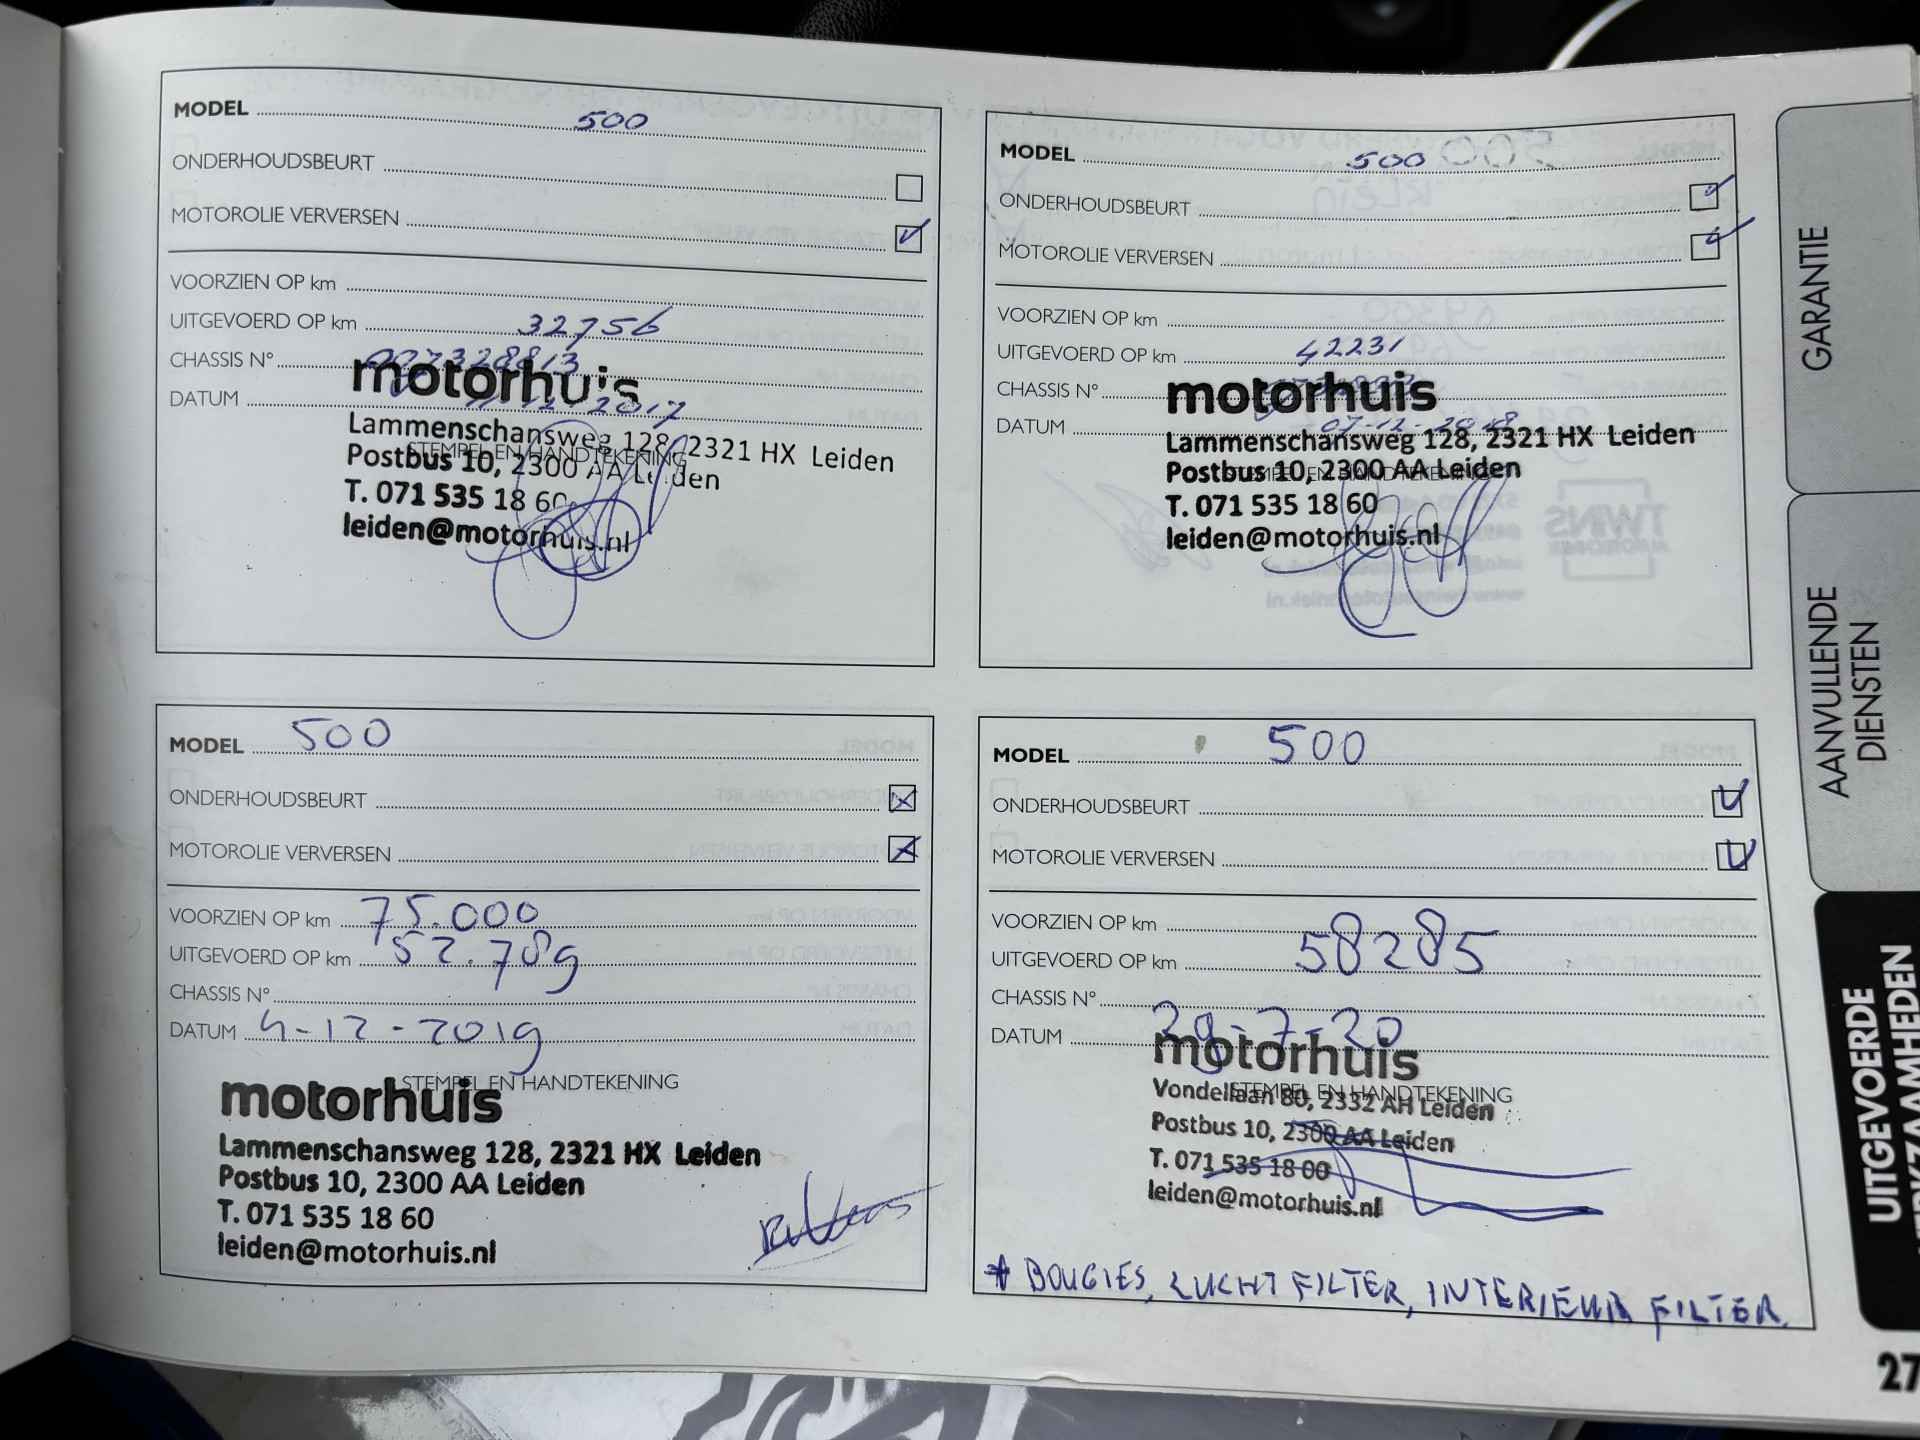 MODEL 500
ONDERHOUDSBEURT
MOTOROLIE VERVERSEN
VOORZIEN OP km
UITGEVOERD OP km 32756
CHASSIS N°
DATUM 11-12-2017
STEMPEL EN HANDTEKENING
motorhuis
Lammenschansweg 128, 2321 HX Leiden
Postbus 10, 2300 AA Leiden
T. 071 535 18 60
leiden@motorhuis.nl
MODEL 500
ONDERHOUDSBEURT
MOTOROLIE VERVERSEN
VOORZIEN OP km
UITGEVOERD OP km 42231
CHASSIS N°
DATUM 07-12-2018
STEMPEL EN HANDTEKENING
motorhuis
Lammenschansweg 128, 2321 HX Leiden
Postbus 10, 2300 AA Leiden
T. 071 535 18 60
leiden@motorhuis.nl
MODEL 500
ONDERHOUDSBEURT
MOTOROLIE VERVERSEN
VOORZIEN OP km 75.000
UITGEVOERD OP km 52.789
CHASSIS N°
DATUM 4-12-2019
STEMPEL EN HANDTEKENING
motorhuis
Lammenschansweg 128, 2321 HX Leiden
Postbus 10, 2300 AA Leiden
T. 071 535 18 60
leiden@motorhuis.nl
MODEL 500
ONDERHOUDSBEURT
MOTOROLIE VERVERSEN
VOORZIEN OP km
UITGEVOERD OP km 58285
CHASSIS N°
DATUM 29-7-20
STEMPEL EN HANDTEKENING
motorhuis
Vondellaan 80, 2332 AH Leiden
Postbus 10, 2300 AA Leiden
T. 071 535 18 00
leiden@motorhuis.nl
* BOUGIES, LUCHT FILTER, INTERIEUR FILTER.
GARANTIE
AANVULLENDE
DIENSTEN
UITGEVOERDE
27